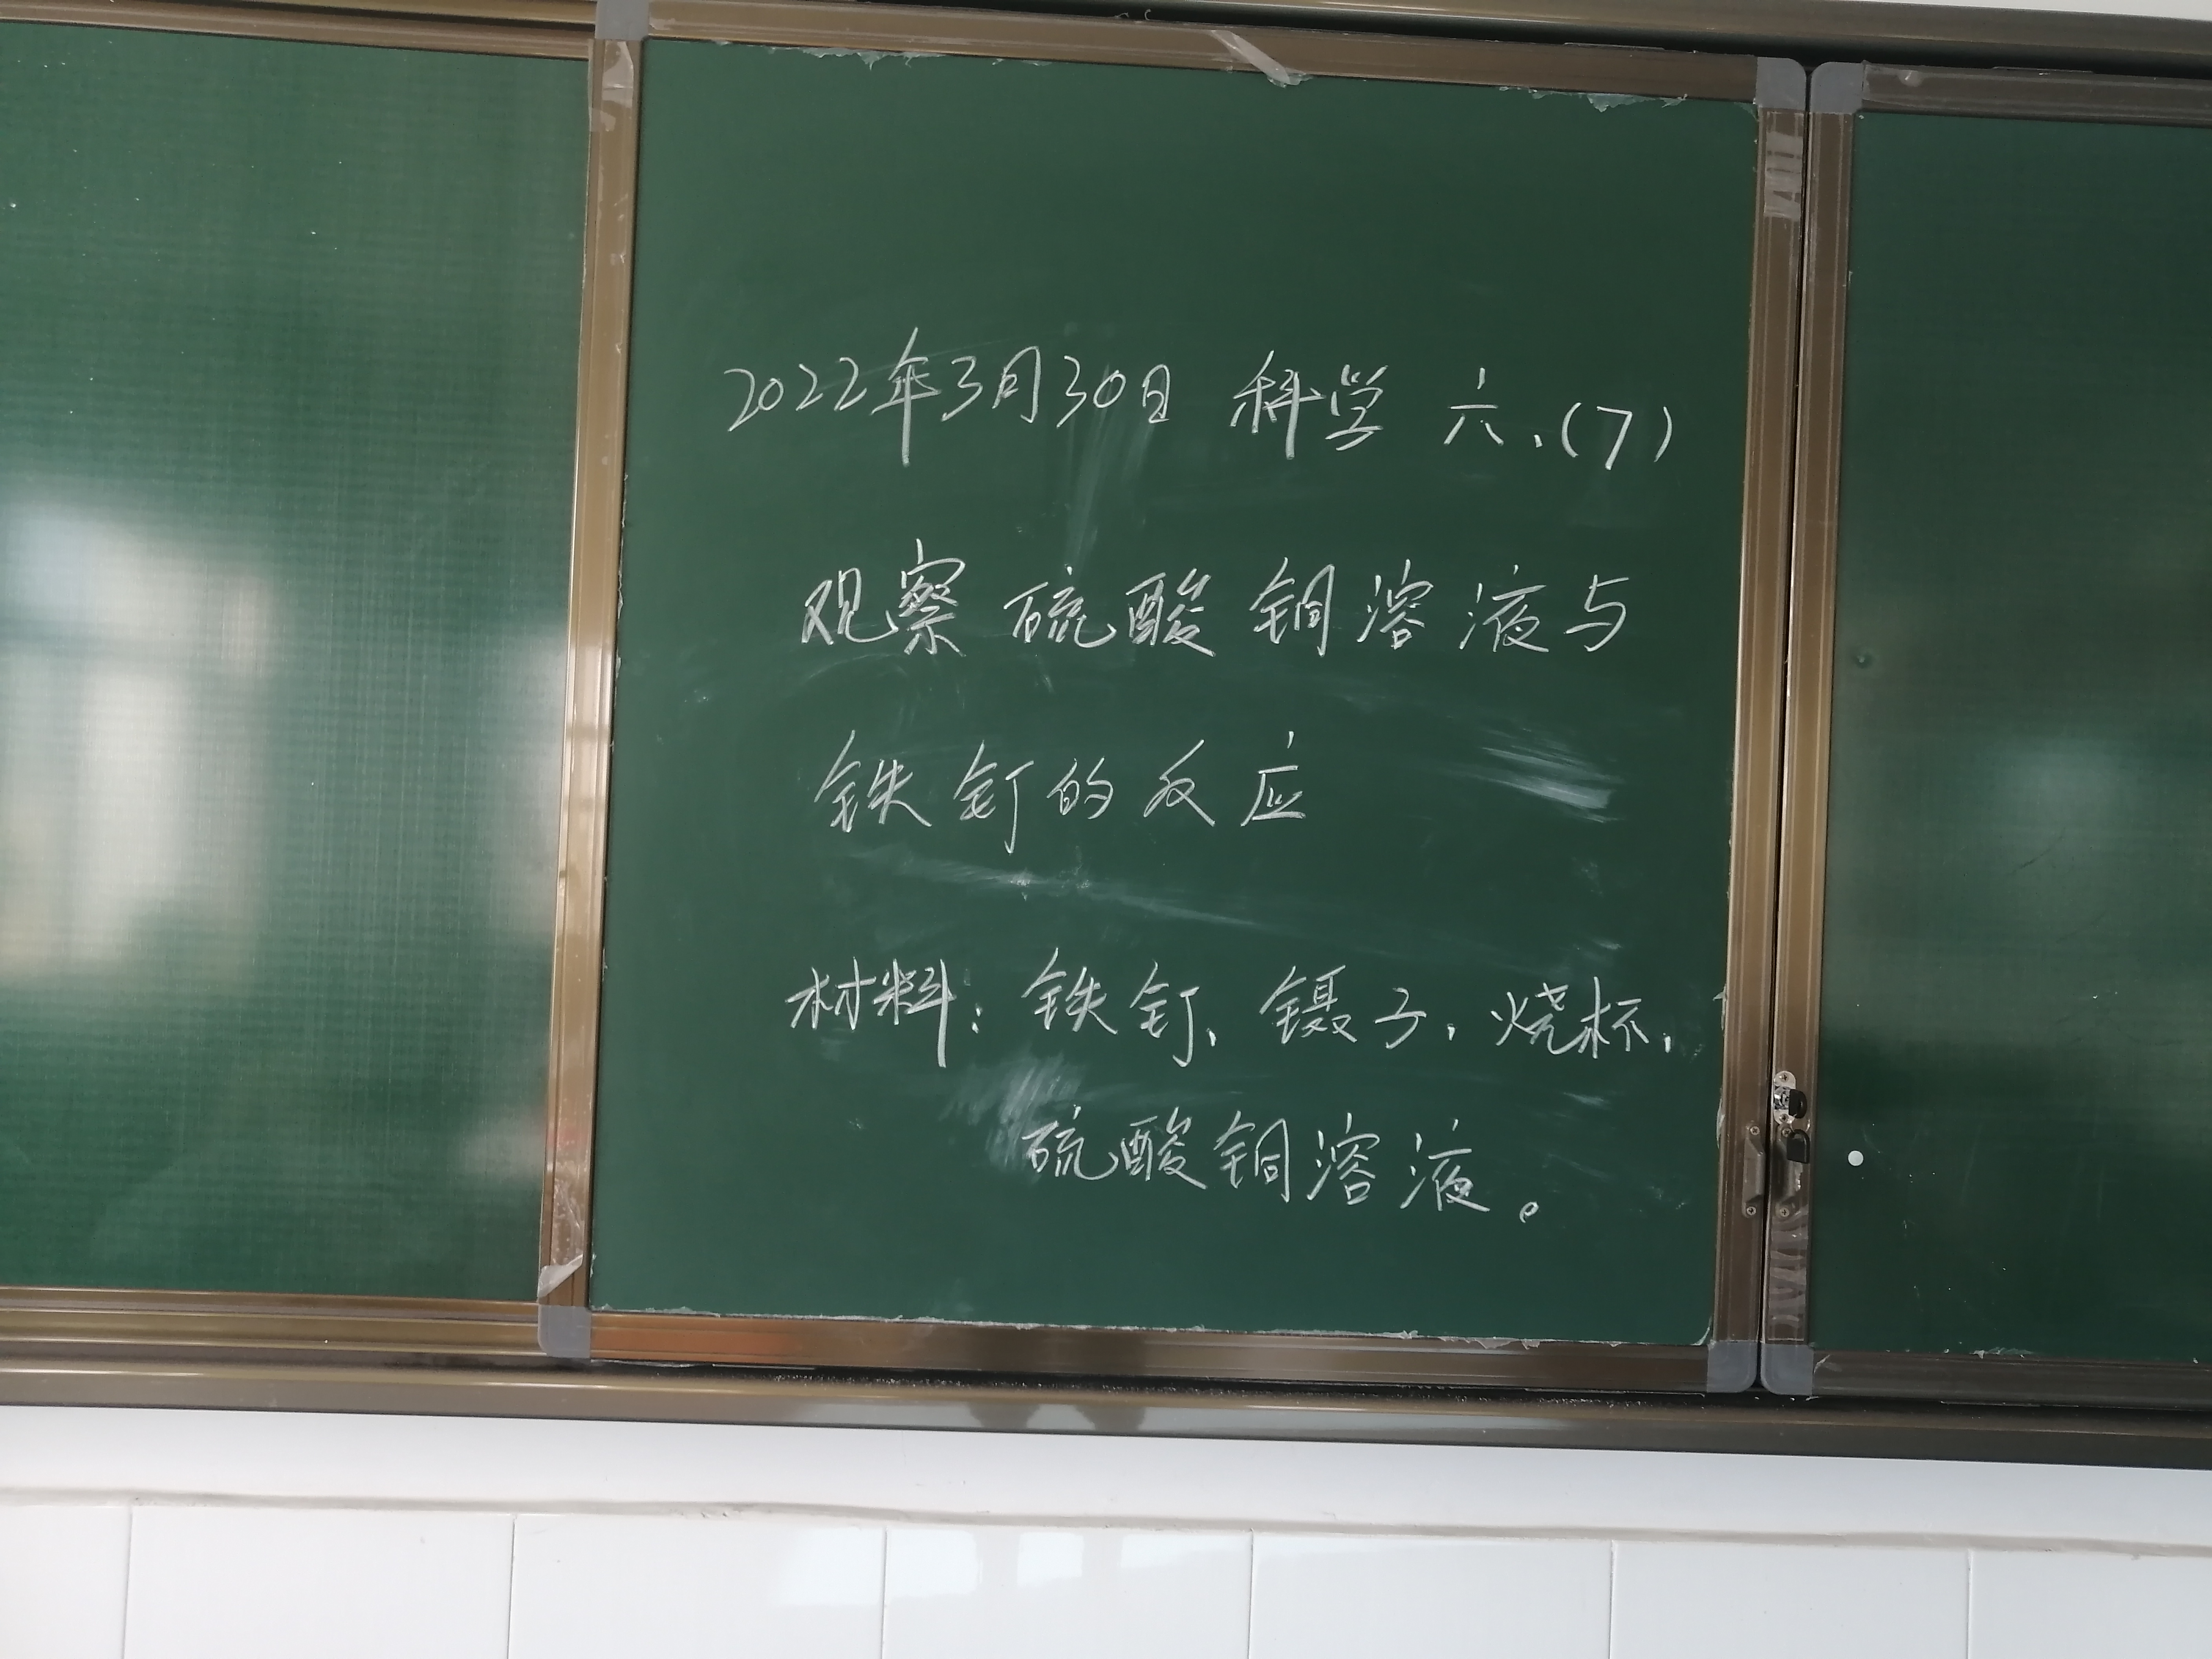 2022年3月30日 科学 六、(7)
观察硫酸铜溶液与
铁钉的反应
材料：铁钉、镊子、烧杯、
硫酸铜溶液。